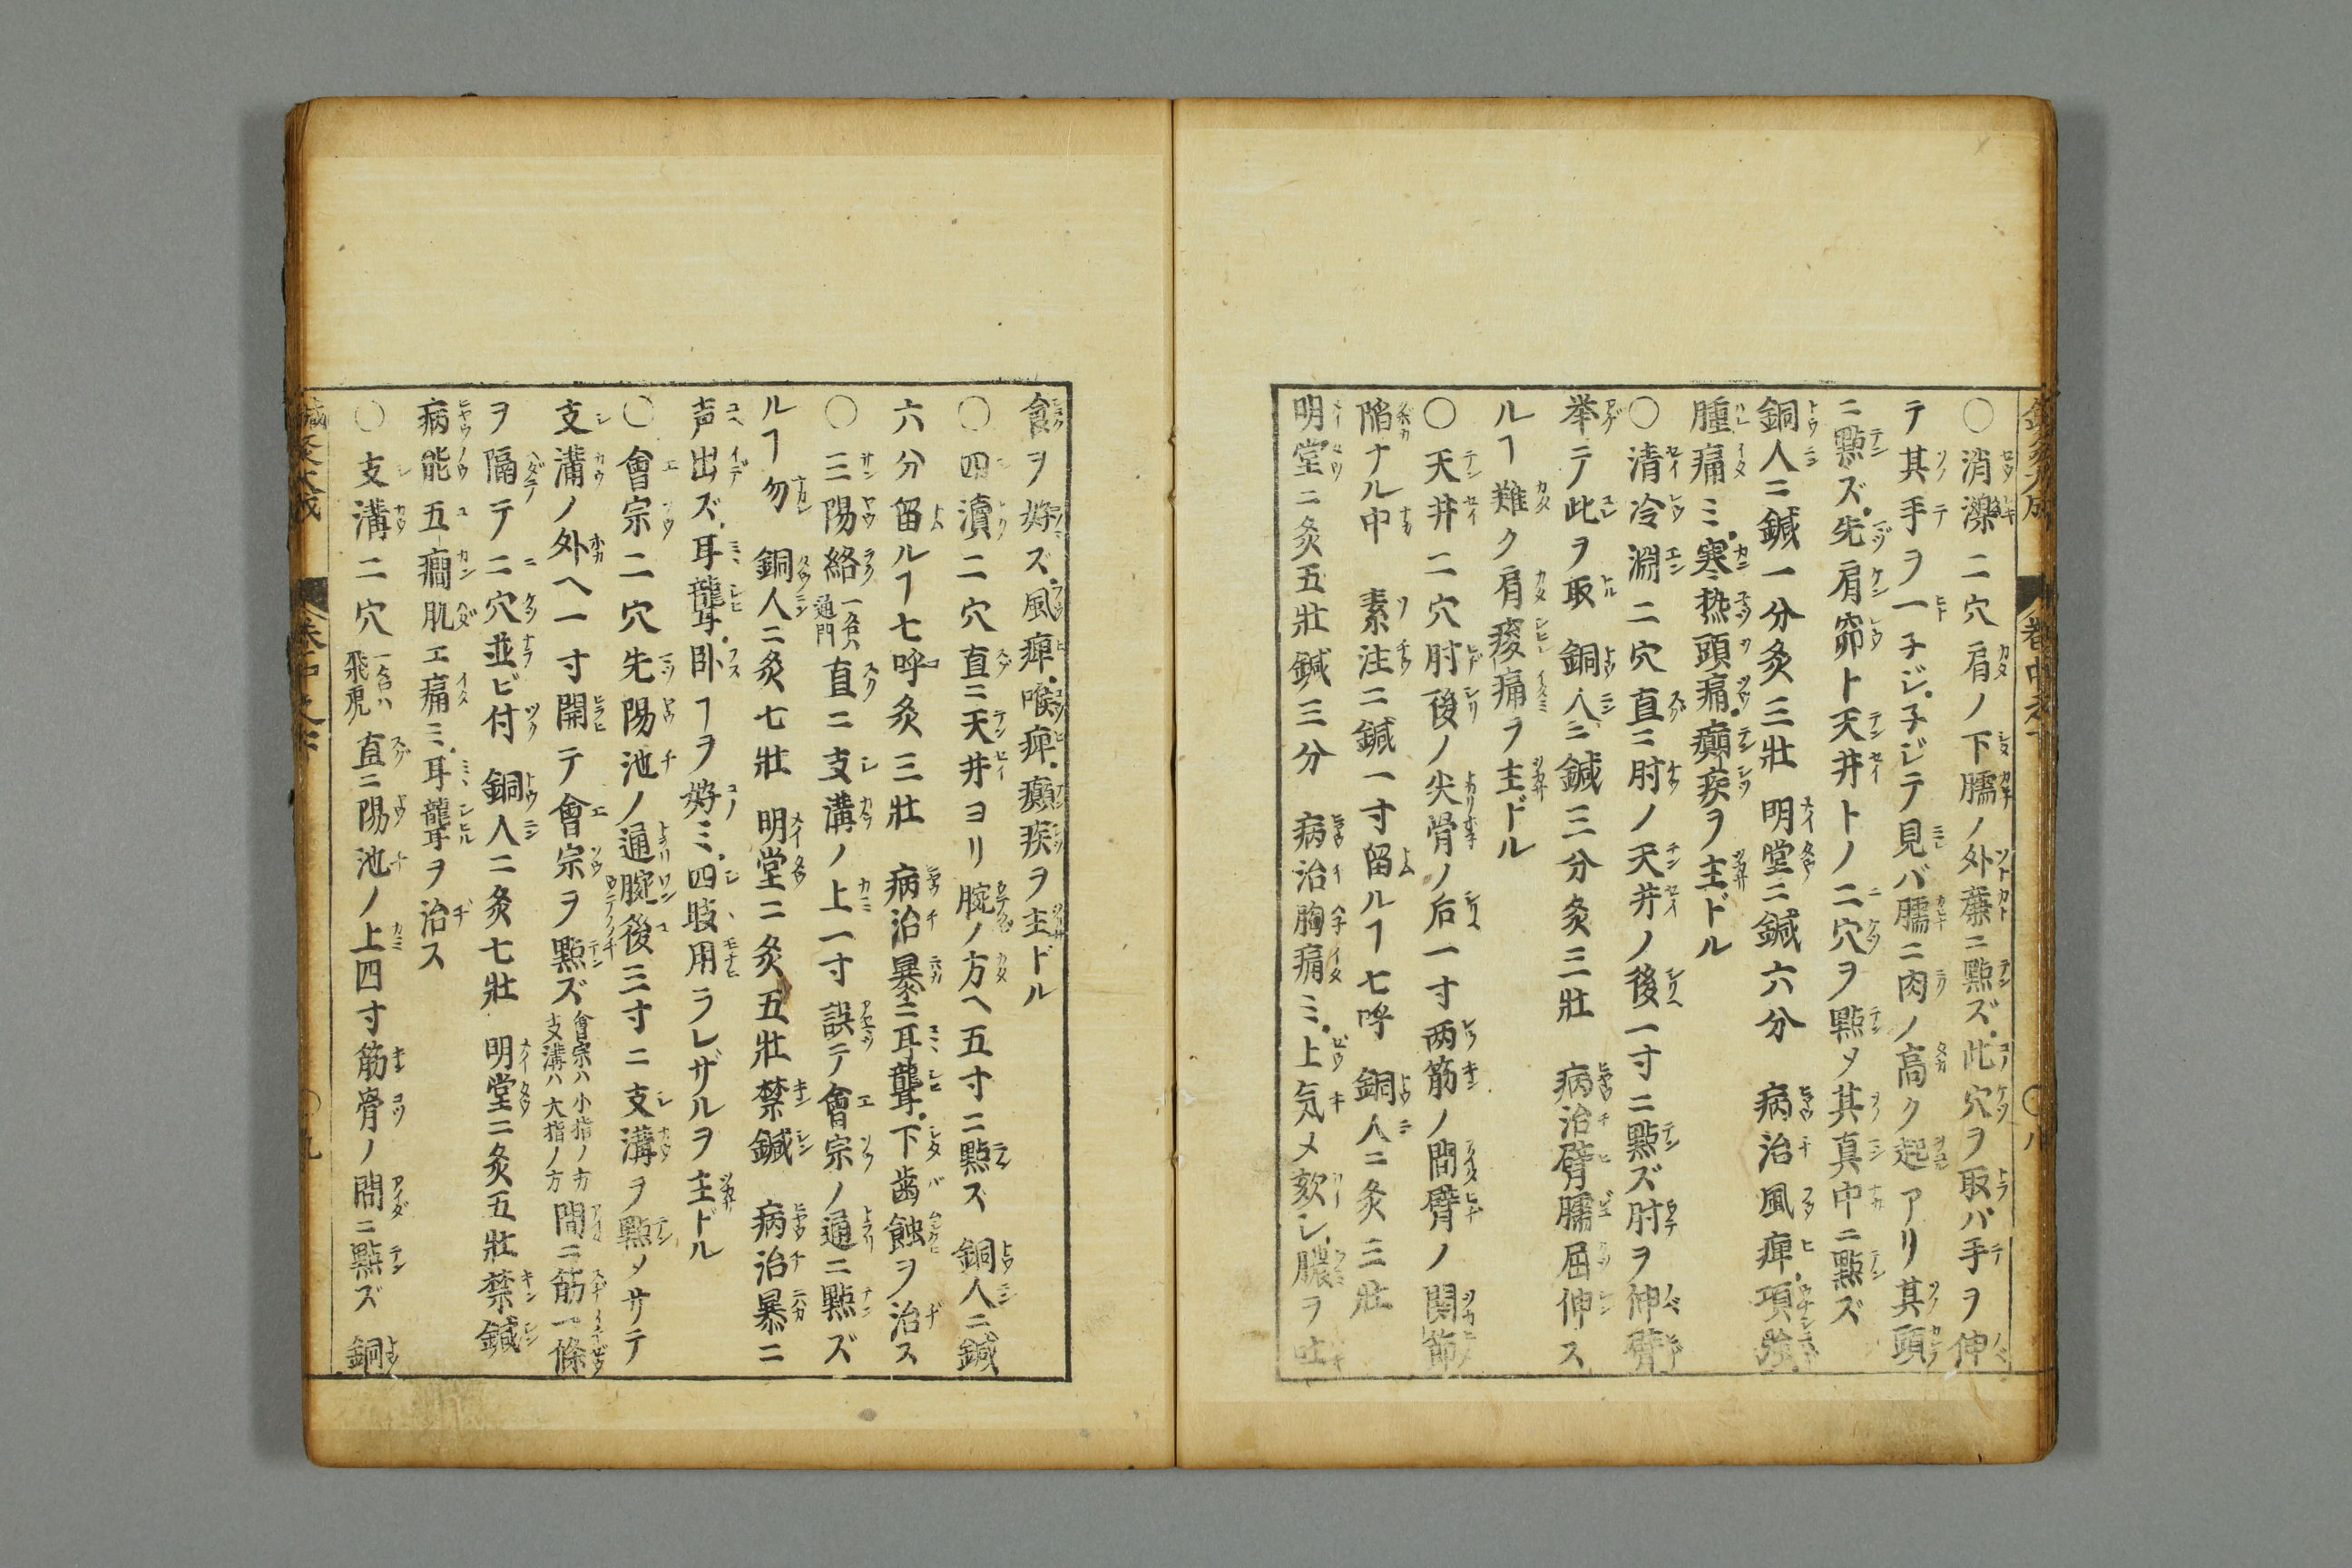 ○消濼二穴肩ノ下臑ノ外廉ニ點ズ此穴ヲ取バ手ヲ伸
テ其手ヲ一子ジ子ジテ見バ臑ニ肉ノ高ク起アリ其頭
ニ點ズ先肩窌ト天井トノ二穴ヲ點メ其真中ニ點ズ
銅人ニ鍼一分灸三壯 明堂ニ鍼六分 病治風痺項強
腫痛ミ寒热頭痛癲疾ヲ主ドル
○清冷淵二穴直ニ肘ノ天井ノ後一寸ニ點ズ肘ヲ伸臂
举テ此ヲ取 銅人ニ鍼三分灸三壯 病治臂臑屈伸ス
ルヿ難ク肩痠痛ヲ主ドル
○天井二穴肘後ノ尖骨ノ后一寸两筋ノ間臂ノ関節
陥ナル中 素注ニ鍼一寸留ルヿ七呼 銅人ニ灸三壯
明堂ニ灸五壯鍼三分 病治胸痛ミ上気メ欬シ膿ヲ吐
食ヲ好ズ風痺喉痺癲疾ヲ主ドル
○四瀆二穴直ニ天井ヨリ腕ノ方ヘ五寸ニ點ズ 銅人ニ鍼
六分留ルヿ七呼灸三壯 病治暴ニ耳聾下歯蝕ヲ治ス
○三陽絡一名ハ通門直ニ支溝ノ上一寸誤テ會宗ノ通ニ點ズ
ルヿ勿 銅人ニ灸七壯 明堂ニ灸五壯禁鍼 病治暴ニ
声出ズ耳聾卧ヿヲ好ミ四肢用ラレザルヲ主ドル
○會宗二穴先陽池ノ通腕後三寸ニ支溝ヲ點メサテ
支溝ノ外ヘ一寸開テ會宗ヲ點ズ會宗ハ小指ノ方支溝ハ大指ノ方間ニ筋一條
ヲ隔テ二穴並ビ付 銅人ニ灸七壯 明堂ニ灸五壯禁鍼
病能五癇肌エ痛ミ耳聾ヲ治ス
○支溝二穴一名ハ飛虎直ニ陽池ノ上四寸筋骨ノ間ニ點ズ 銅